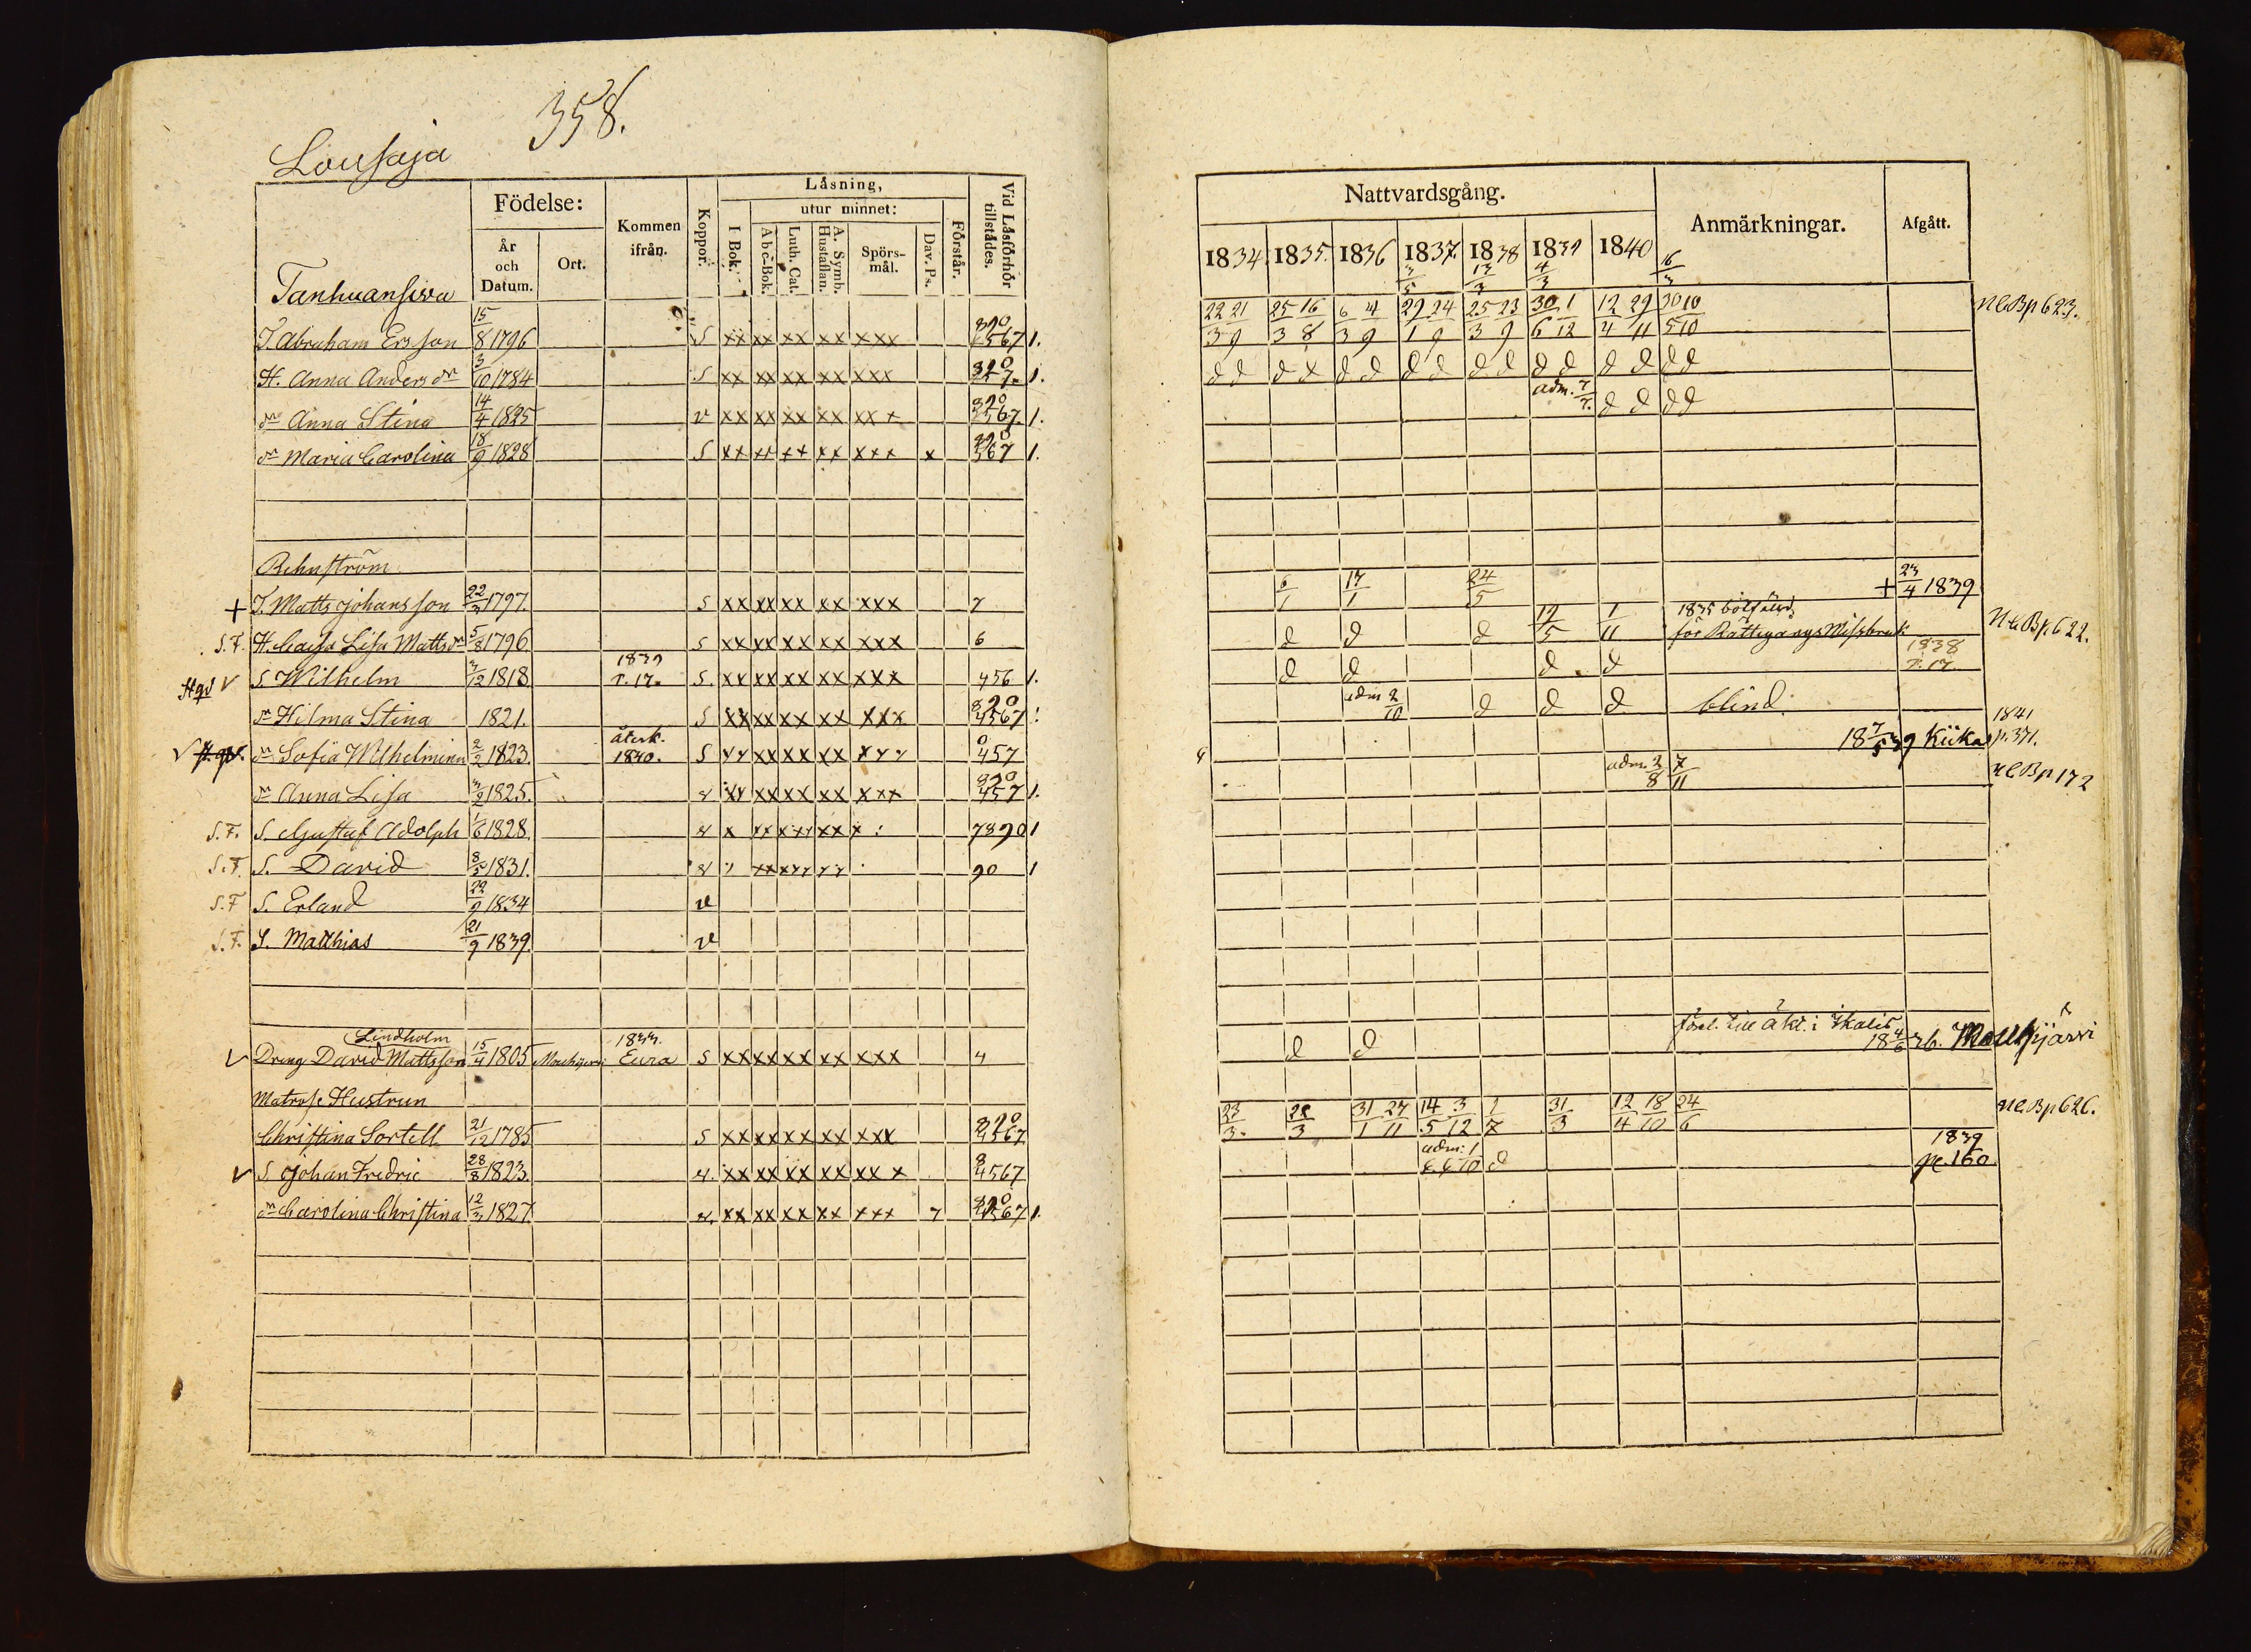 358.
Lousaja
Födelse:
År
och
Datum.
Ort.
Kommen
ifrån.
Koppor.
Läsning,
I Bok.
utur minnet:
Abc-Bok.
Luth. Cat.
A. Symb.
Hustaflan.
Spörs-
mål.
Dav. Ps.
Förstår.
Vid Läsförhör
tillstådes.
Nattvardsgång.
1834. 1835. 1836 1837. 1838 1839 1840
Anmärkningar.
Afgått.
Tanhuansivu
T. Abraham Ersson 15/8 1796 S xx xx xx xx xxx 1.
22/3 21/9 25/3 16/8 6/3 4/9 29/1 24/9 25/3 23/9 30/6 1/12 12/4 29/11 30/5 10/10 N C B p 623.
H. Anna Anders dr 3/10 1784 S xx xx xx xx xxx 1.
dr Anna Stina 14/4 1825 v xx xx xx xx xx x 1. adm.
dr Maria Carolina 18/9 1828 S xx xx xx xx xxx x 567 1.
Rehnström
+ T. Matts Johansson 22/3 1797. S xx xx xx xx xxx 7
6/1 17/1 24/5 + 23/4 1839
S.F. H. Caisa Lisa Matts dr 5/8 1796 S xx xx xx xx xxx 6
d d d 12/5 1/11 1835
för Rättegangs Missbruk N C B p 622.
Hgd v S Wilhelm 3/12 1818 1839 p. 17. S. xx xx xx xx xxx 456 1.
d d d d 1838 p. 17
dr Hilma Stina 1821. S xx xx xx xx xxx 4567
adm 2/10 d d d blind.
v dr Sofia Wilhelmina 2/2 1823. återk. 1840. S 457
18 7/5 39 Kiikas 1841 p. 371.
dr Anna Lisa 3/2 1825. 457 1.
adm. 2/8 7/11 N C B p 172
S.F. S. Gustaf Adolph 1/6 1828. 7890 1
S.F. S. David 8/5 1831. 90 1
S.F S. Erland 22/9 1834 v
S.F. S. Matthias 21/9 1839. v
Lindholm
v Dreng David Mattsson 15/4 1805 Mouhijervi 1833. Eura S xx xx xx xx xxx 4
d d till äkt. i Ikalis
18 4/6 36. Mouhijärvi
Matrose Hustrun
Christina Sortell 21/12 1785 S xx xx xx xx xxx 4567
23/3. 28/3 31/1 27/11 14/5 3/12 1/7 31/3 12/4 18/10 24/6 N C B p 626.
v S. Johan Fredric 28/8 1823. xx xx xx xx xx x 4567
adm: 1/10 d 1839
pc. 160.
dr Carolina Christina 12/3 1827 xx xx xx xx xxx 4567 1.